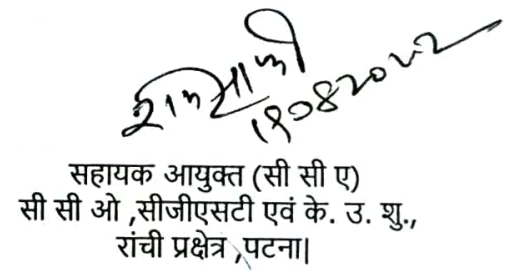 १९०४२०२२
सहायक आयुक्त (सी सी ए)
सी सी ओ ,सीजीएसटी एवं के. उ. शु.,
रांची प्रक्षेत्र ,पटना|